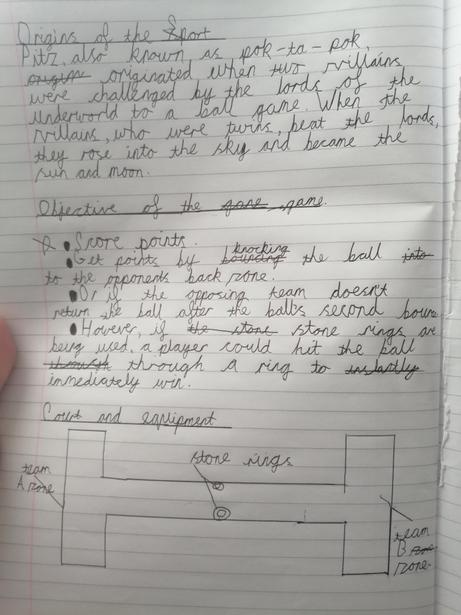 Origins of the Sport
Pitz, also known as pok-ta-pok,
origin originated when two villains
were challenged by the lords of the
underworld to a ball game. When the
villains, who were twins, beat the lords,
they rose into the sky and became the
sun and moon.
Objective of the game game.
• Score points.
• Get points by bouncing knocking the ball into
to the opponents back zone.
• Or if the opposing team doesn't
return the ball after the balls second boun
• However, if the stone stone rings are
being used, a player could hit the ball
through through a ring to instantly
immediately win.
Court and equipment
stone rings
team
A zone
team
B zone
zone.